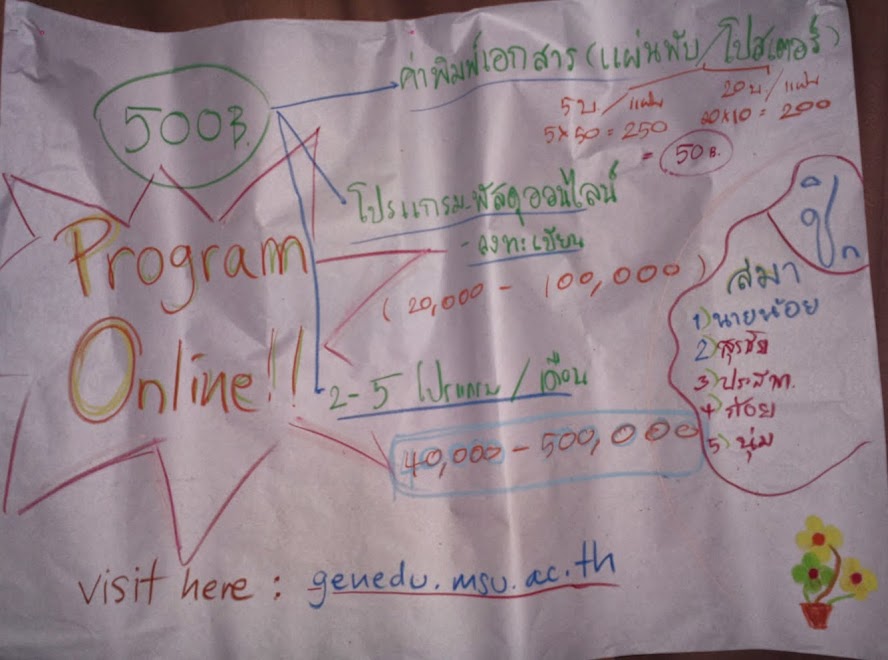 500฿.
ค่าพิมพ์เอกสาร (แผ่นพับ/โปสเตอร์)
5บ./แผ่น 20บ/แผ่น
5x50 = 250 20x10 = 200
= 50 ฿.
โปรแกรมพัสดุออนไลน์
- ลงทะเบียน
(20,000 - 100,000)
Program
Online!!
2-5 โปรแกรม/เดือน
40,000 - 500,000
สมา
1) นายน้อย
2) สุรชัย
3)
4) ก้อย
5) นุ่ม
visit here : genedu.msu.ac.th